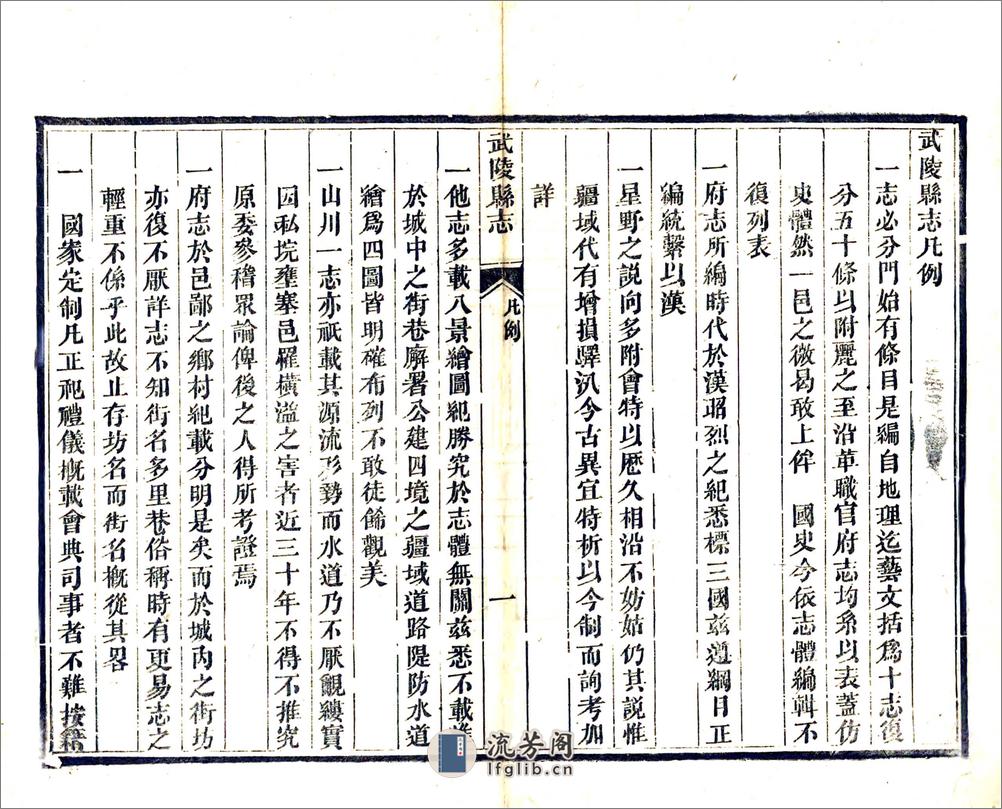 武陵縣志凡例
一志必分門始有條目是編自地理迄藝文括爲十志復
分五十條以附麗之至沿革職官府志均系以表蓋仿
史體然一邑之微曷敢上侔　國史今依志體編輯不
復列表
一府志所編時代於漢昭烈之紀悉標三國兹遵綱目正
編統繫以漢
一星野之説向多附會特以歷久相沿不妨姑仍其説惟
疆域代有增損驛汛今古異宜特析以今制而詢考加
詳
武陵縣志
凡例
一
一他志多載八景繪圖紀勝究於志體無關兹悉不載
於城中之街巷廨署公建四境之疆域道路隄防水道
繪爲四圖皆明確布列不敢徒飾觀美
一山川一志亦祇載其源流形勢而水道乃不厭覼縷實
因私垸壅塞邑罹橫溢之害者近三十年不得不推究
原委參稽眾論俾後之人得所考證焉
一府志於邑鄙之鄉村紀載分明是矣而於城内之街坊
亦復不厭詳志不知街名多里巷俗稱時有更易志之
輕重不係乎此故止存坊名而街名概從其畧
一　國家定制凡正祀禮儀概載會典司事者不難按籍
流芳阁
lfglib.cn